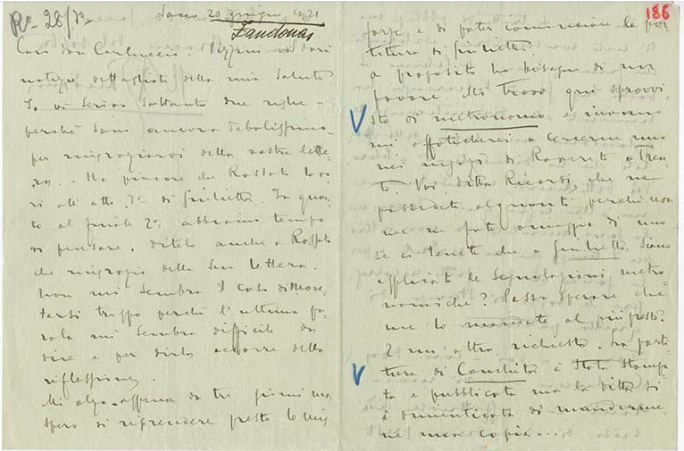 R° 28/7°
Sacco 20 giugno 1921
Zandonai
Caro don Carluccio. Pizzini vi darà
notizie dettagliate della mia salute
Io vi scrivo soltanto due righe
perché sono ancora debolissimo
per ringraziarvi della vostra lette-
ra. Ho piacere che Rossato lavo-
ri all'atto 3° di Giulietta. In quan-
to al finale 2° abbiamo tempo
di pensare. Ditelo anche a Rossato
che ringrazio della sua lettera.
Non mi sembra il caso di
troppo perché l'ultima pa-
rola mi sembra difficile da
dire e per dirla occorre della
riflessione.
Mi alzo appena da tre giorni ma
spero di riprendere presto le mie
186
forze e di poter cominciare la par-
titura di Giulietta
A proposito ho bisogno di un
favore. Mi trovo qui sprovvi-
sto di metronomo e
mi affaticherei a cercarne uno
nei negozi di Rovereto o Tren-
to. Voi ditta Ricordi che ne
possedete alquanti perché non
me ne fate omaggio di uno
se ci tenete che a Giulietta siano
applicate le segnalazioni metro-
nomiche? Posso sperare che
me lo mandiate al più presto.
E un'altra richiesta. La parti-
tura di Conchita è stata stampa-
ta e pubblicata ma la ditta si
è dimenticata di mandarmene
una copia...